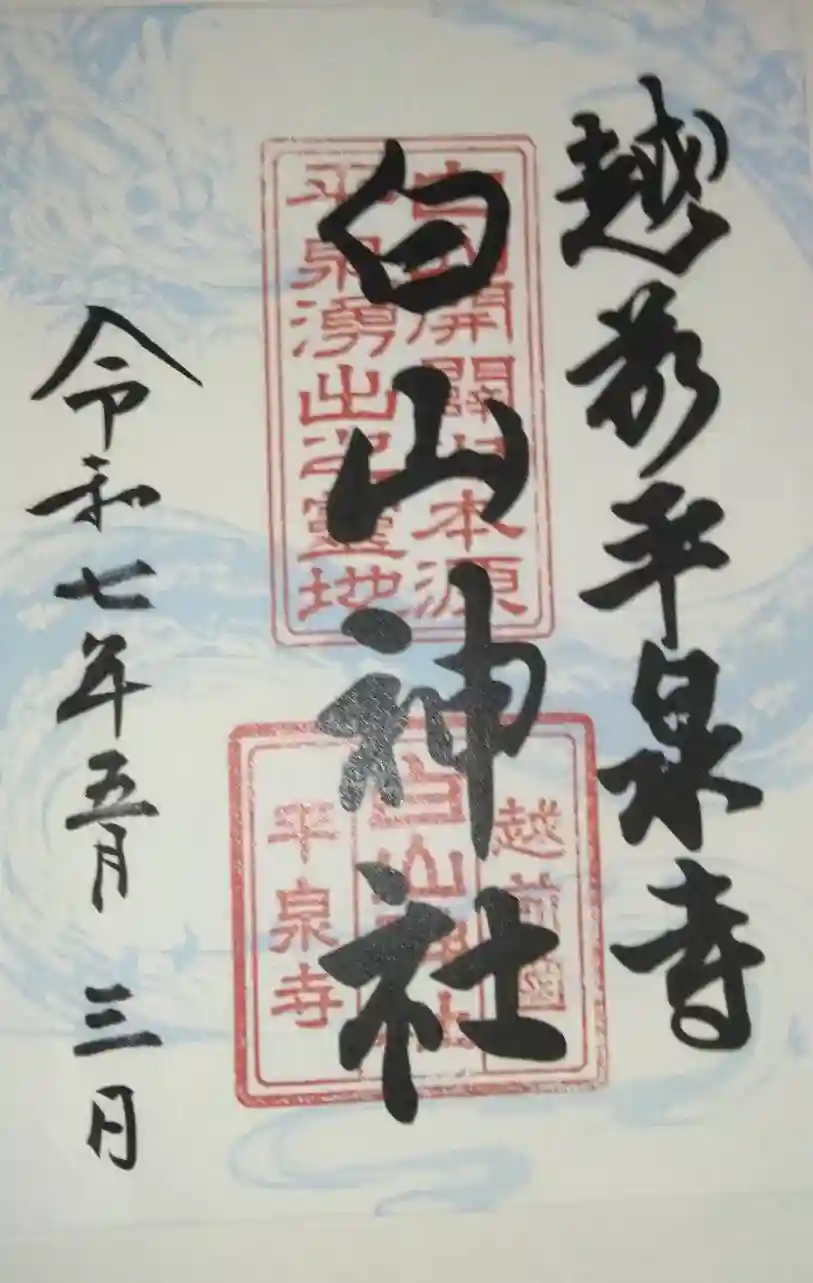 越前平泉寺
白山神社
令和七年五月 三日
白山開闢之本源
平泉湧出之靈地
越前國
白山神社
平泉寺